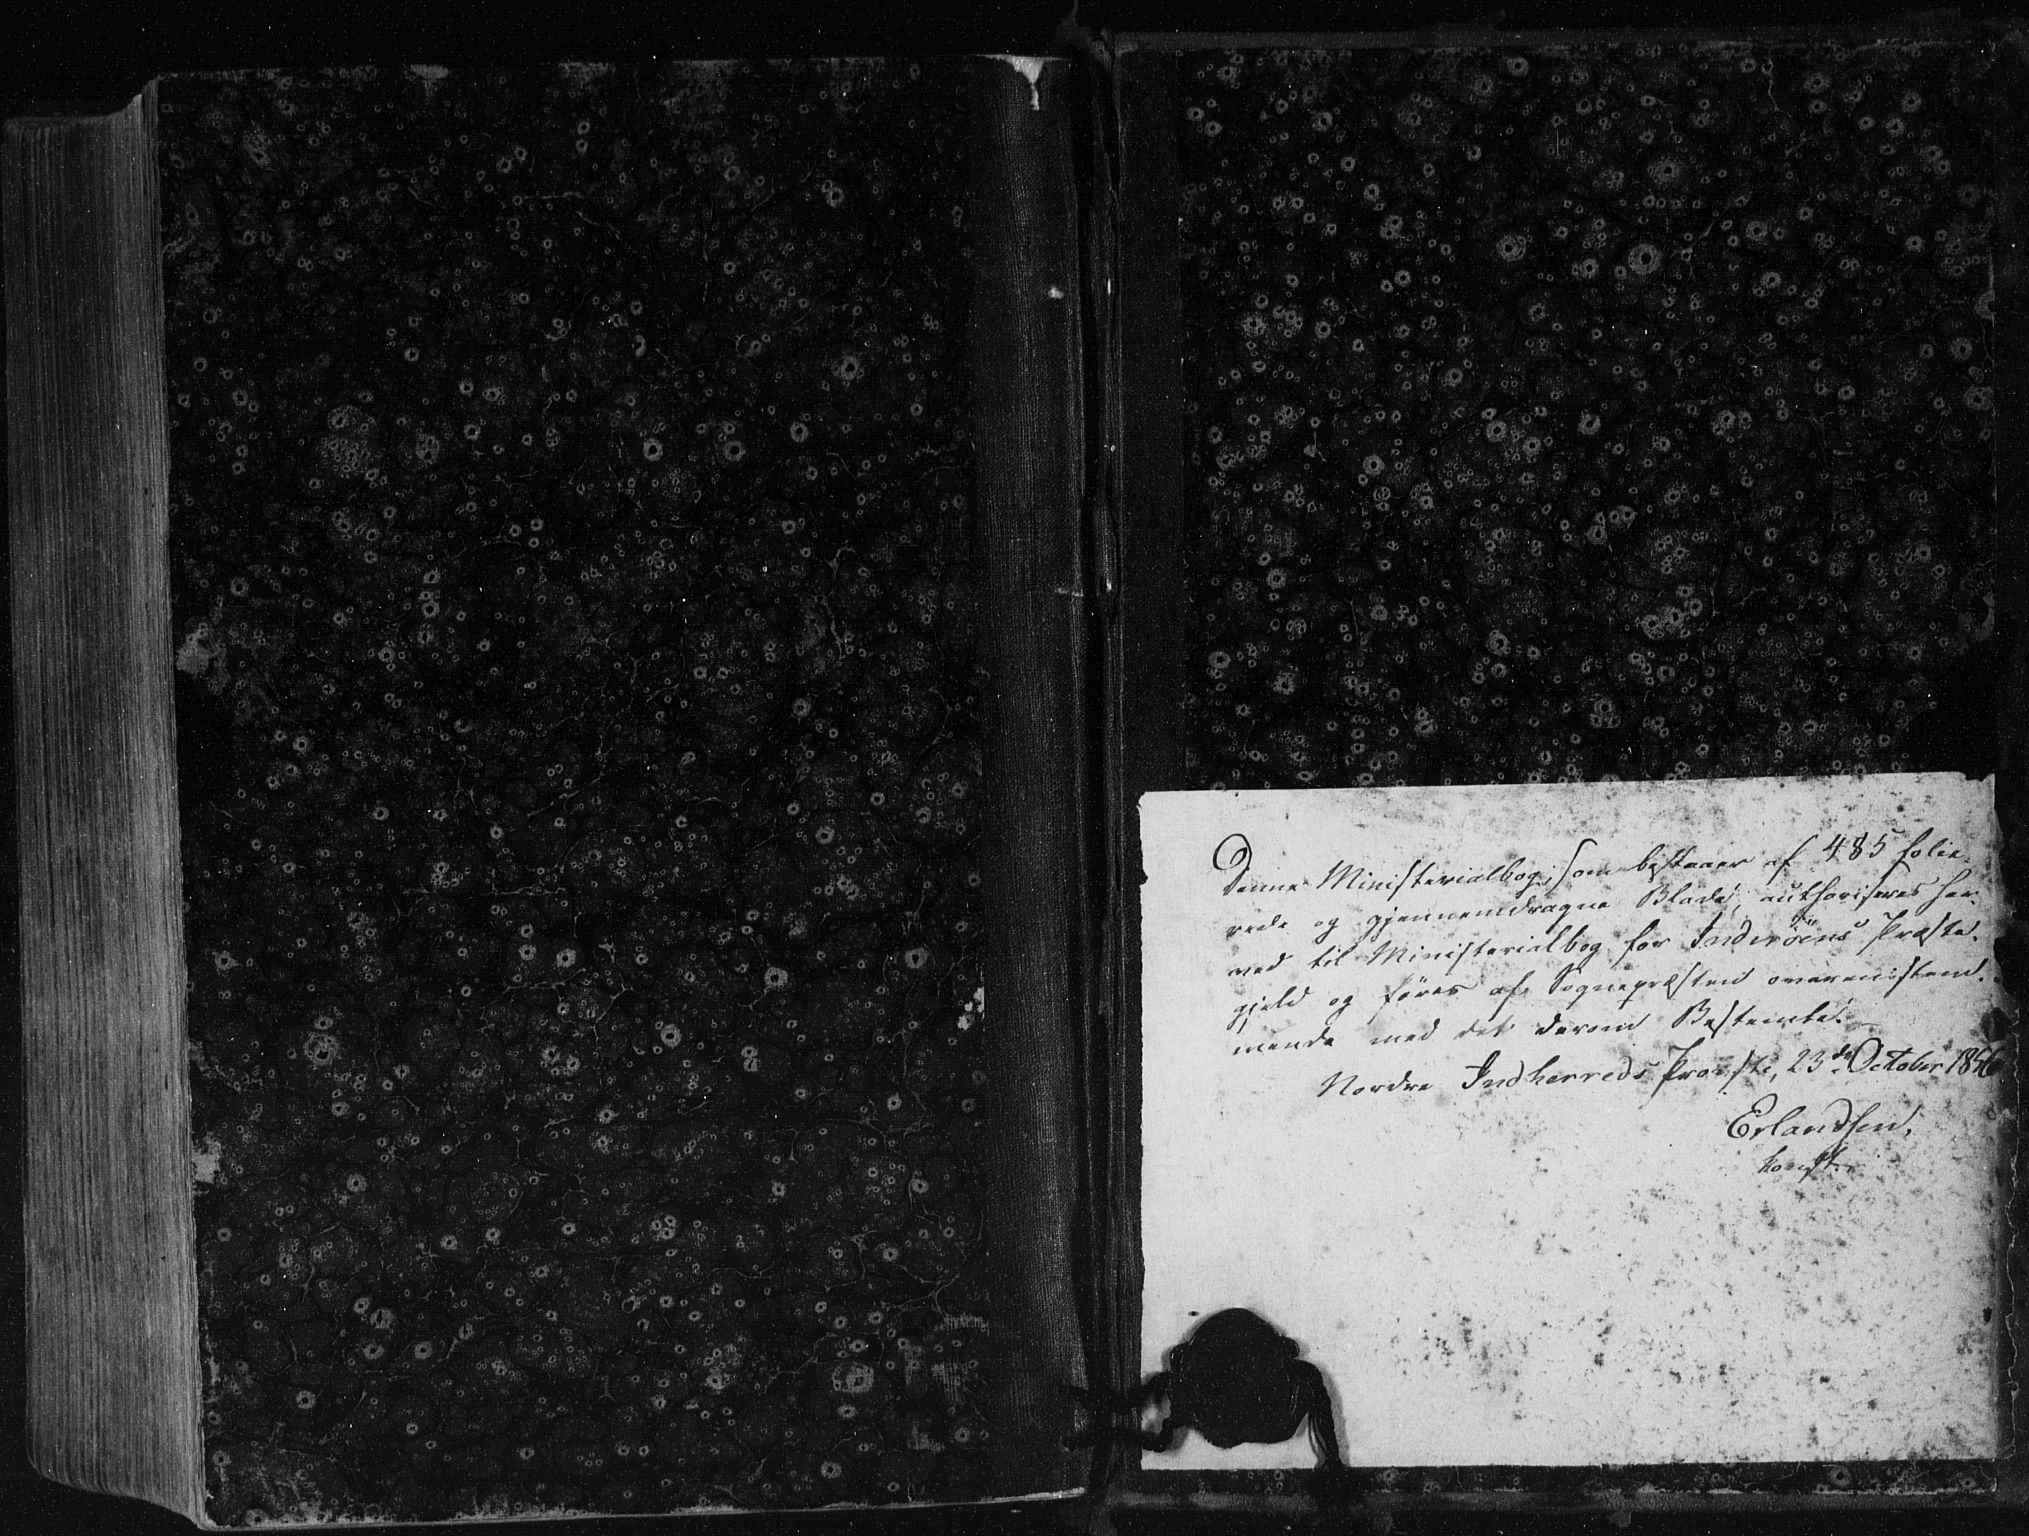 Denne Ministerialbog, som bestaaer af 485 folie-
rede og gjennemdragne Blade, authoriseres her-
ved til Ministerialbog for Inderöens Præste-
gjeld og føres af Sognepræsten overensstem-
mende med det derom Bestemte.
Nordre Indherreds Provsti, 23de October 1856
Erlandsen,
konst.